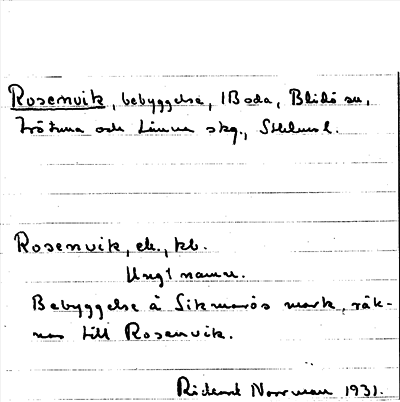 Rosenvik, bebyggelse, i Boda, Blidö sn,
Frötuna och Länna skg., Sthlms l.
Rosenvik, eb., kb.
Ungt namn.
Bebyggelse å Sikmarös mark, räk-
nas till Rosenvik.
Rickard Norrman 1931.